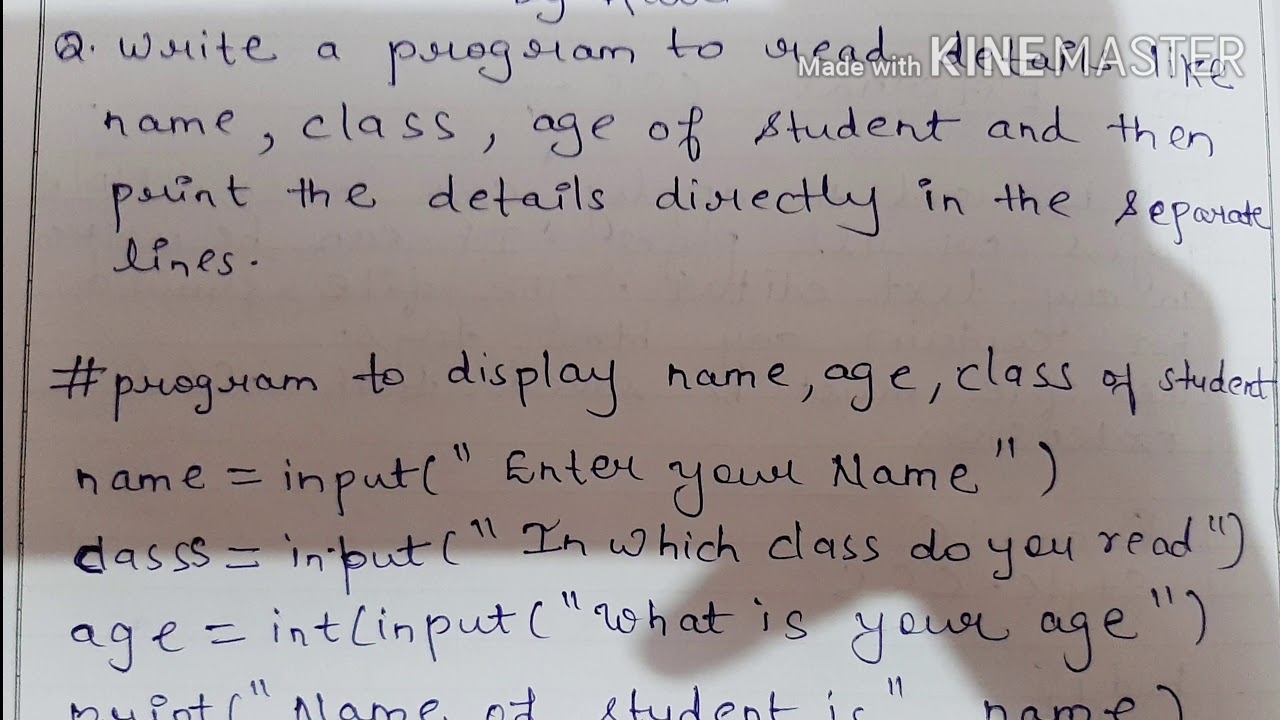 by
Q. Write a program to read details like
Made with KINEMASTER
name, class, age of student and then
print the details directly in the separate
lines.
#program to display name, age, class of student
name = input(" Enter your Name ")
classs = input(" In which class do you read")
age = int(input("What is your age")
print(" Name of student is" name)